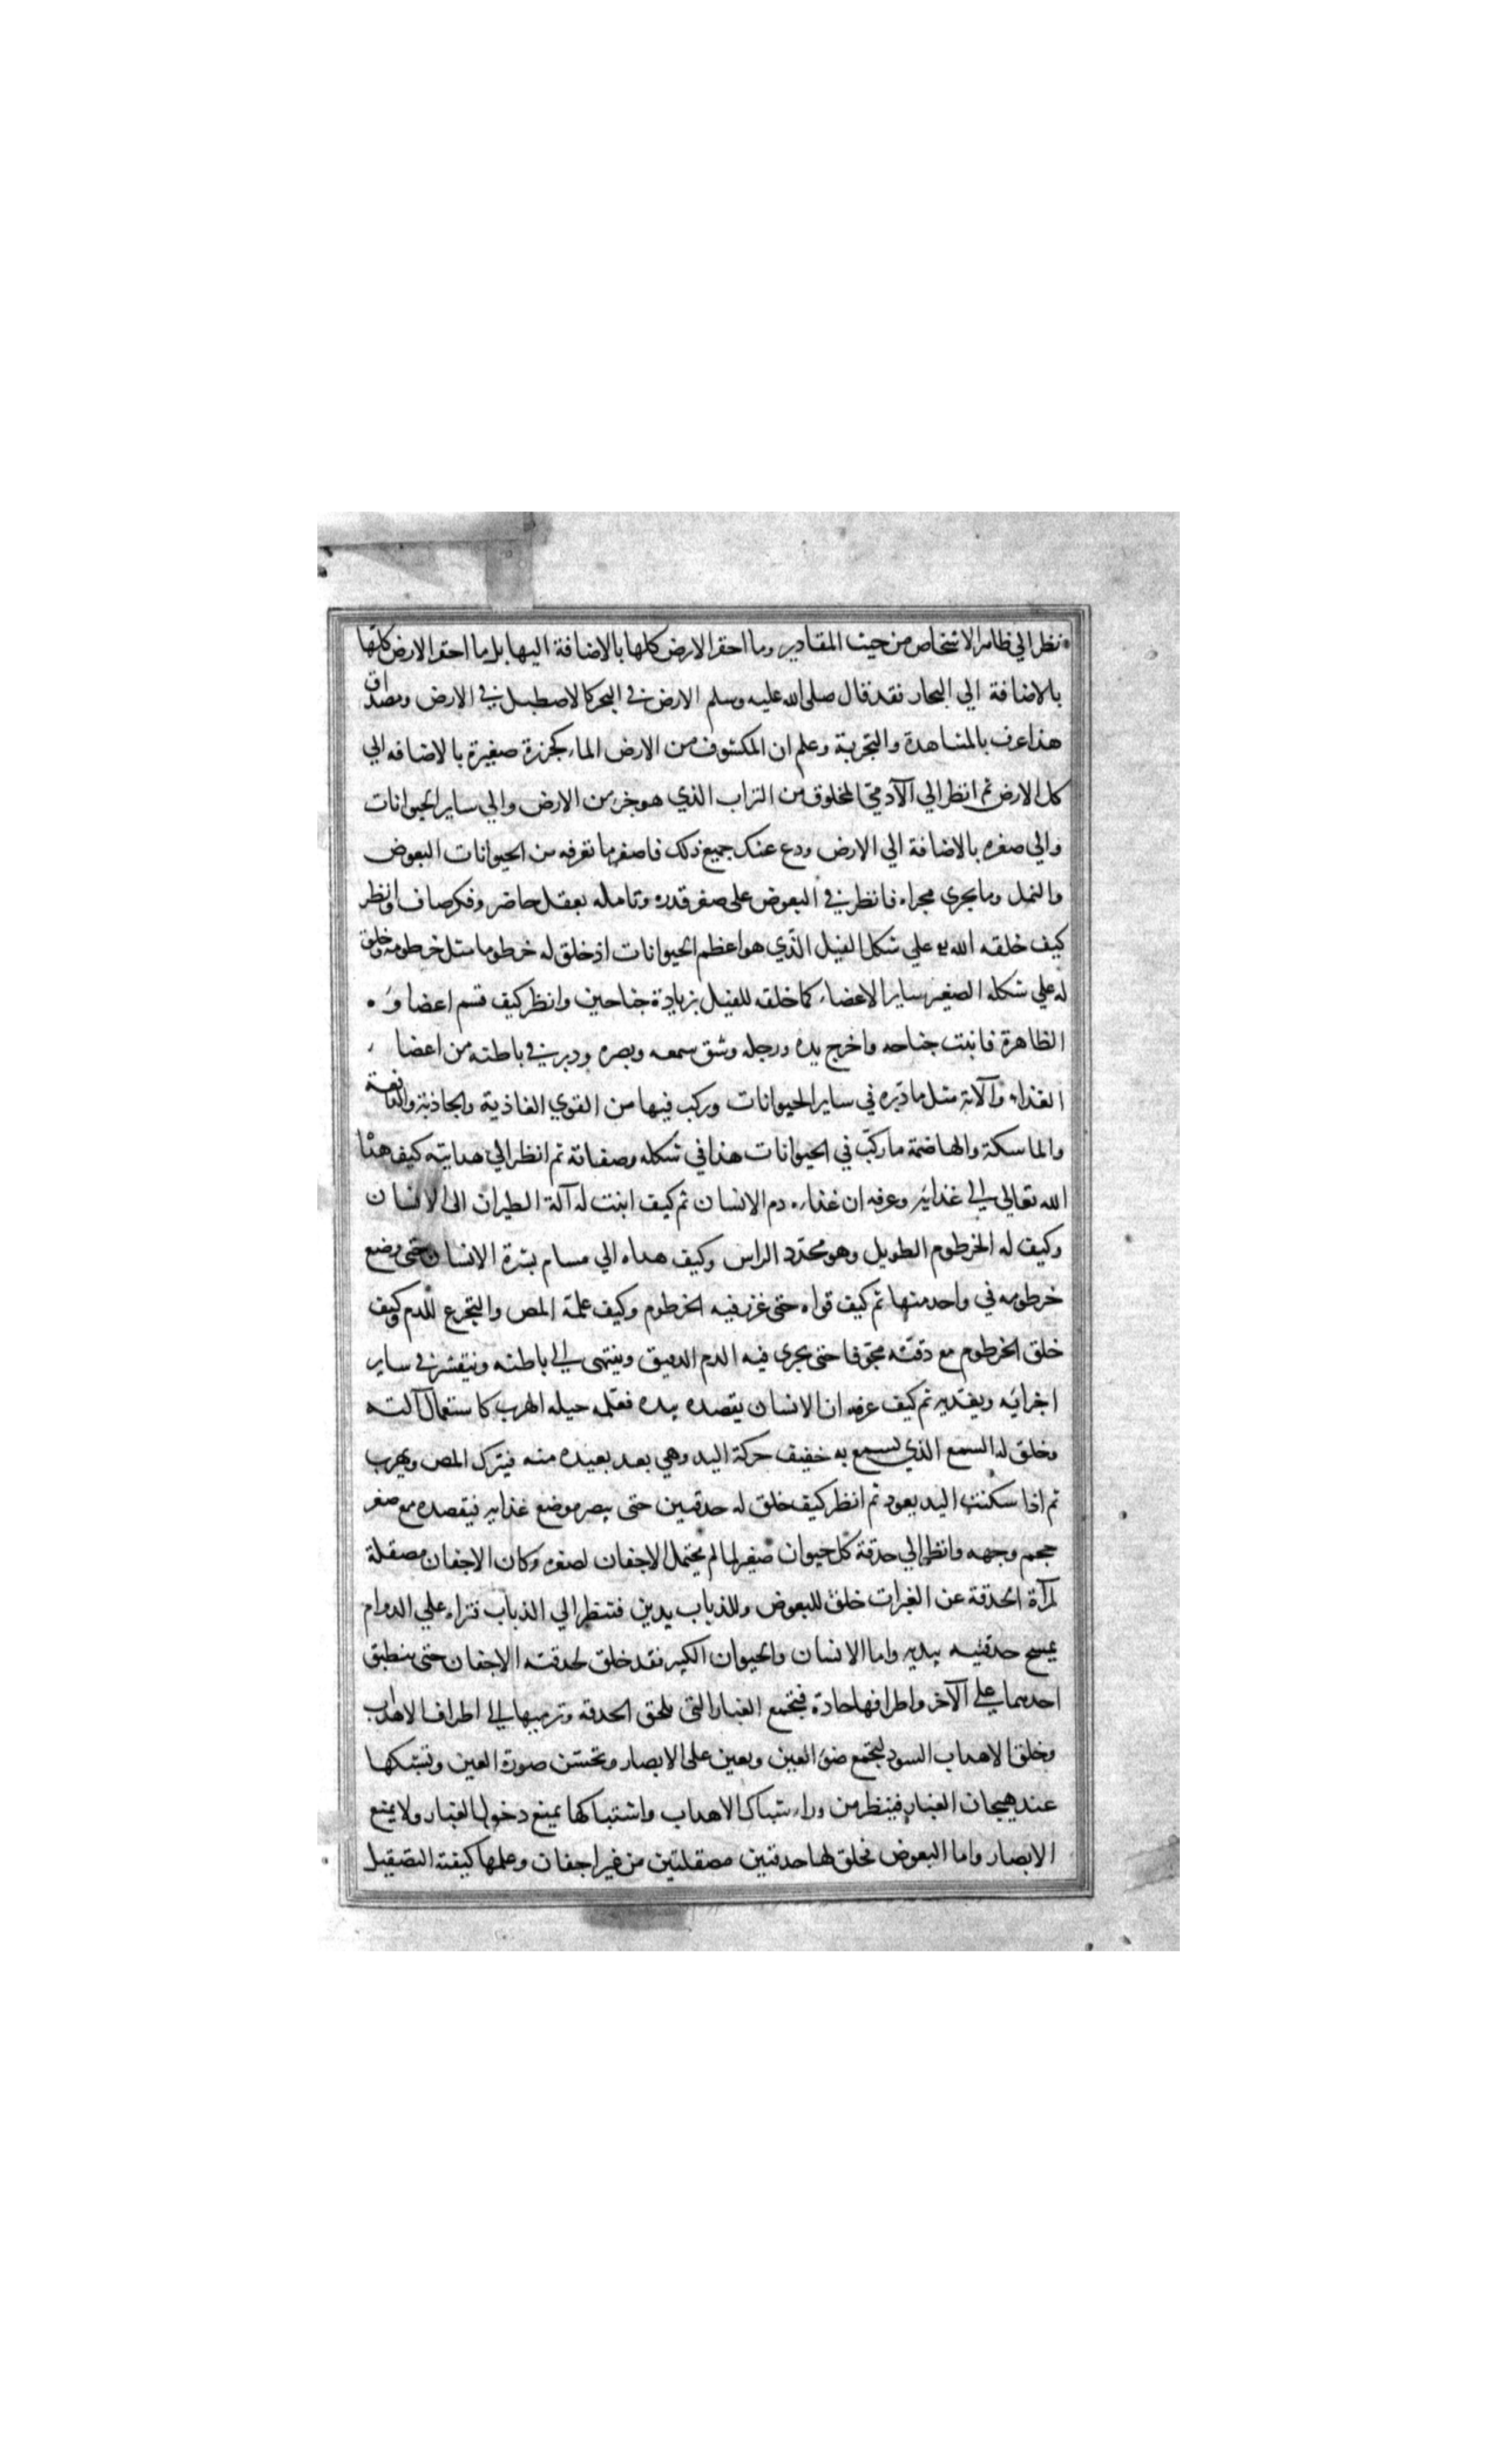 نظر الي ظاهر الاشخاص من حيث المقادير وما احقر الارض كلها بالاضافة اليها بل ما احقر الارض كلها
بالاضافة الي البحار فقد قال صلى الله عليه وسلم الارض في البحر كالاصطبل في الارض ومصداق
هذا عرف بالمشاهدة والتجربة وعلم ان المكشوف من الارض الماء كجزرة صغيرة بالاضافه الي
كل الارض ثم انظر الي الآدمي المخلوق من التراب الذي هو جزء من الارض والي ساير الحيوانات
والي صغره بالاضافة الي الارض ودع عنك جميع ذلك فاصغر ما نعرفه من الحيوانات البعوض
والنمل وما يجرى مجراه فانظر في البعوض على صغر قدره وتامله بعقل حاضر وفكر صاف وانظر
كيف خلقه الله علي شكل الفيل الذي هو اعظم الحيوانات اذ خلق له خرطوما مثل خرطومه وخلق
له علي شكله الصغير ساير الاعضاء كما خلقه للفيل بزيادة جناحين وانظر كيف قسم اعضاوه
الظاهرة فانبت جناحه واخرج يده ورجله وشق سمعه وبصره ودبر في باطنه من اعضاء
الغذاء وآلاته مثل ما دبره في ساير الحيوانات وركب فيها من القوي الغاذية والجاذبة والدافعة
والماسكة والهاضمة ما ركب في الحيوانات هذا في شكله وصفاته ثم انظر الي هدايته كيف هداه
الله تعالي الي غذايه وعرفه ان غذاءه دم الانسان ثم كيف انبت له آلة الطيران الى الانسان
وكيف له الخرطوم الطويل وهو محدد الراس وكيف هداه الي مسام بشرة الانسان حتى يضع
خرطومه في واحد منها ثم كيف قواه حتى غرز فيه الخرطوم وكيف علمه المص والتجرع للدم وكيف
خلق الخرطوم مع دقته مجوفا حتى يجرى فيه الدم الدقيق وينتهى الي باطنه وينتشر في ساير
اجزايه ويغذيه ثم كيف عرفه ان الانسان يقصده بيده فعلمه حيله الهرب كاستعمال آلته
وخلق له السمع الذي يسمع به خفيف حركة اليد وهي بعد بعيده منه فيترك المص ويهرب
ثم اذا سكنت اليد يعود ثم انظر كيف خلق له حدقتين حتى يبصر موضع غذايه فيقصده مع صغر
حجم وجهه وانظر الي حدقة كل حيوان صغير لما لم يحتمل الاجفان لصغره وكان الاجفان مصقلة
لمرآة الحدقة عن الغبرات خلق للبعوض وللذباب يدين فتنظر الي الذباب تراه علي الدوام
يمسح حدقتيه بيديه واما الانسان والحيوان الكبير فقد خلق لحدقته الاجفان حتى ينطبق
احدهما علي الآخر واطرافها حادة فتجمع الغبار التي تلحق الحدقه وترميها الي اطراف الاهداب
وخلق الاهداب السود لتجمع ضوء العين وتعين على الابصار وتحسن صورة العين وتشبكها
عند هيجان الغبار فينظر من وراء شباك الاهداب واشتباكها يمنع دخول الغبار ولا يمنع
الابصار واما البعوض فخلق لها حدقتين مصقلتين من غير اجفان وعلمها كيفية التصقيل